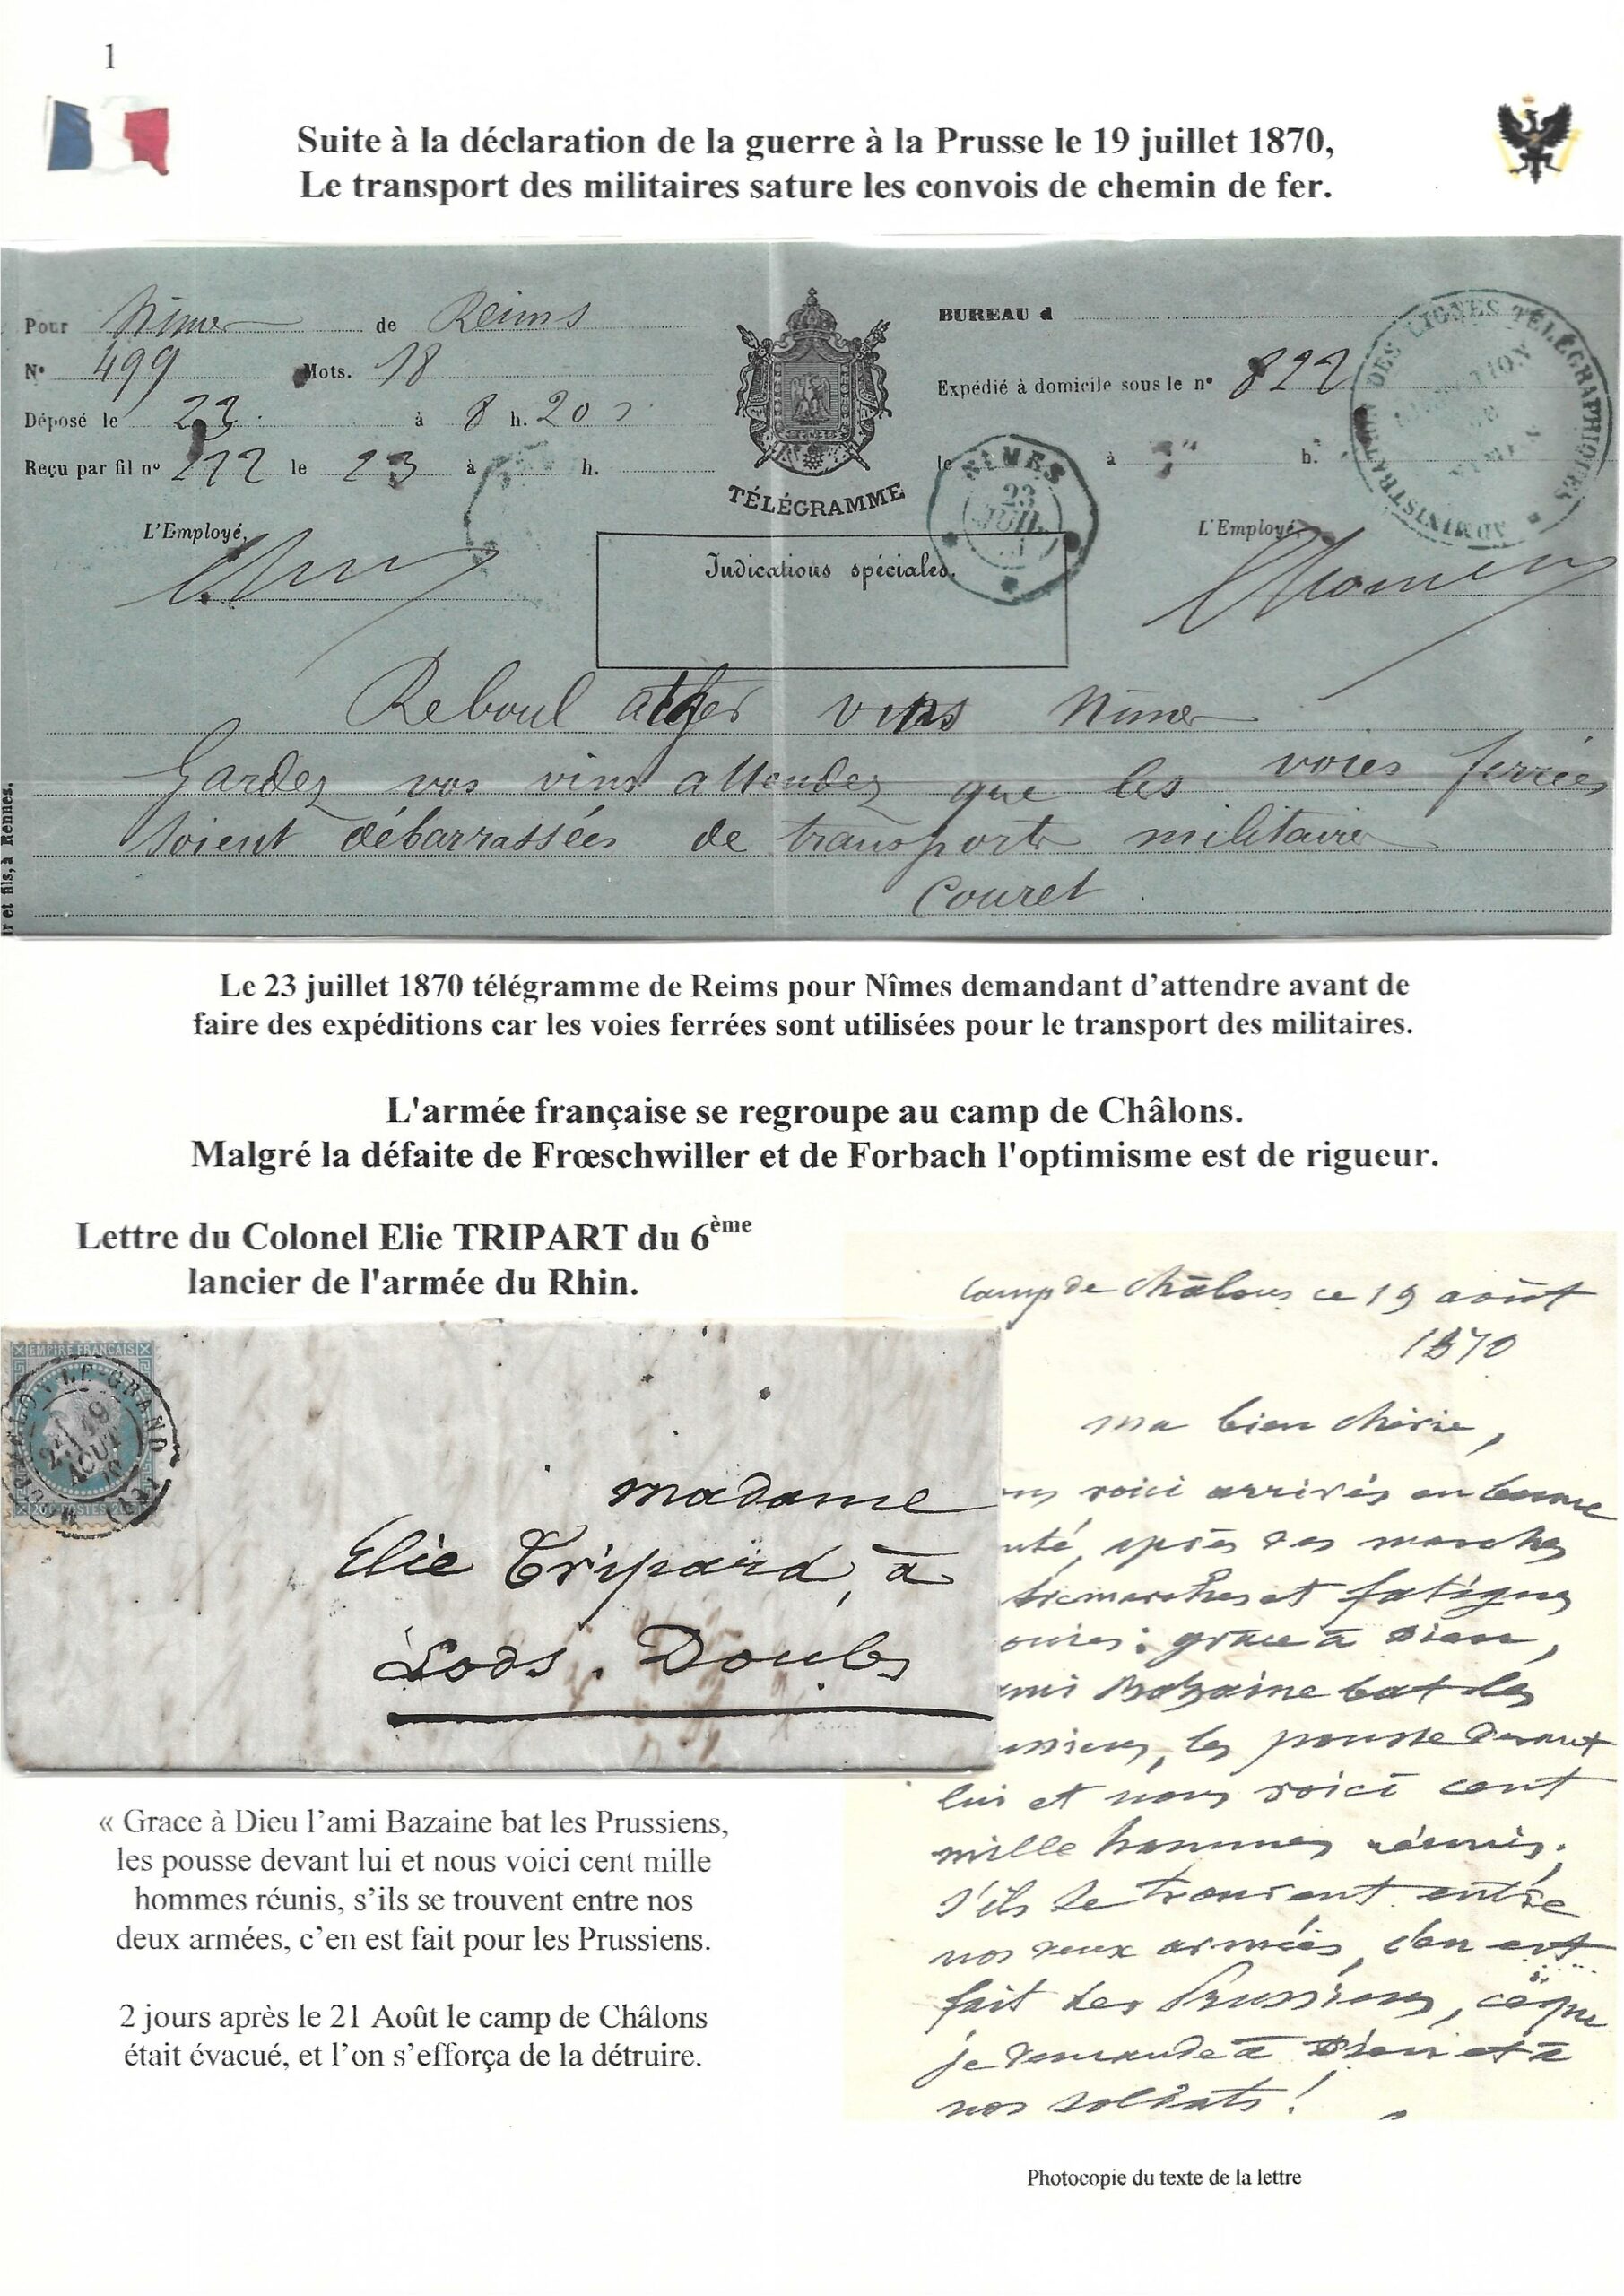 1
Suite à la déclaration de la guerre à la Prusse le 19 juillet 1870,
Le transport des militaires sature les convois de chemin de fer.
Pour Nimes de Reims
N° 499 Mots. 18
Déposé le 23 à 8 h. 20
Reçu par fil n° 212 le 23 à h.
L'Employé,
TÉLÉGRAMME
Indications spéciales.
BUREAU d
Expédié à domicile sous le n° 822
le à h.
L'Employé,
NIMES
23
JUIL.
ADMINISTRATION DES LIGNES TÉLÉGRAPHIQUES
DIRECTION
DE
NIMES
Reboul vins Nimes
Gardez vos vins attendez que les voies ferrées
soient débarrassées de transports militaires
Couret
r et fils, à Rennes.
Le 23 juillet 1870 télégramme de Reims pour Nîmes demandant d'attendre avant de
faire des expéditions car les voies ferrées sont utilisées pour le transport des militaires.
L'armée française se regroupe au camp de Châlons.
Malgré la défaite de Frœschwiller et de Forbach l'optimisme est de rigueur.
Lettre du Colonel Elie TRIPART du 6ème
lancier de l'armée du Rhin.
EMPIRE FRANCAIS
20c POSTES 20c
MOURMELON-LE-GRAND
19
AOUT
70
madame
Elie Tripard, à
Lods. Doubs
camp de châlons ce 19 août
1870
ma bien chérie,
voici arrivés en bonne
après des marches
et fatigues
grâce à Dieu,
Bazaine bat les
les pousse devant
lui et nous voici cent
mille hommes réunis,
s'ils se trouvent entre
nos deux armées, c'en est
fait des Prussiens, ce que
je demande à Dieu et à
nos soldats !
« Grace à Dieu l'ami Bazaine bat les Prussiens,
les pousse devant lui et nous voici cent mille
hommes réunis, s'ils se trouvent entre nos
deux armées, c'en est fait pour les Prussiens.
2 jours après le 21 Août le camp de Châlons
était évacué, et l'on s'efforça de la détruire.
Photocopie du texte de la lettre